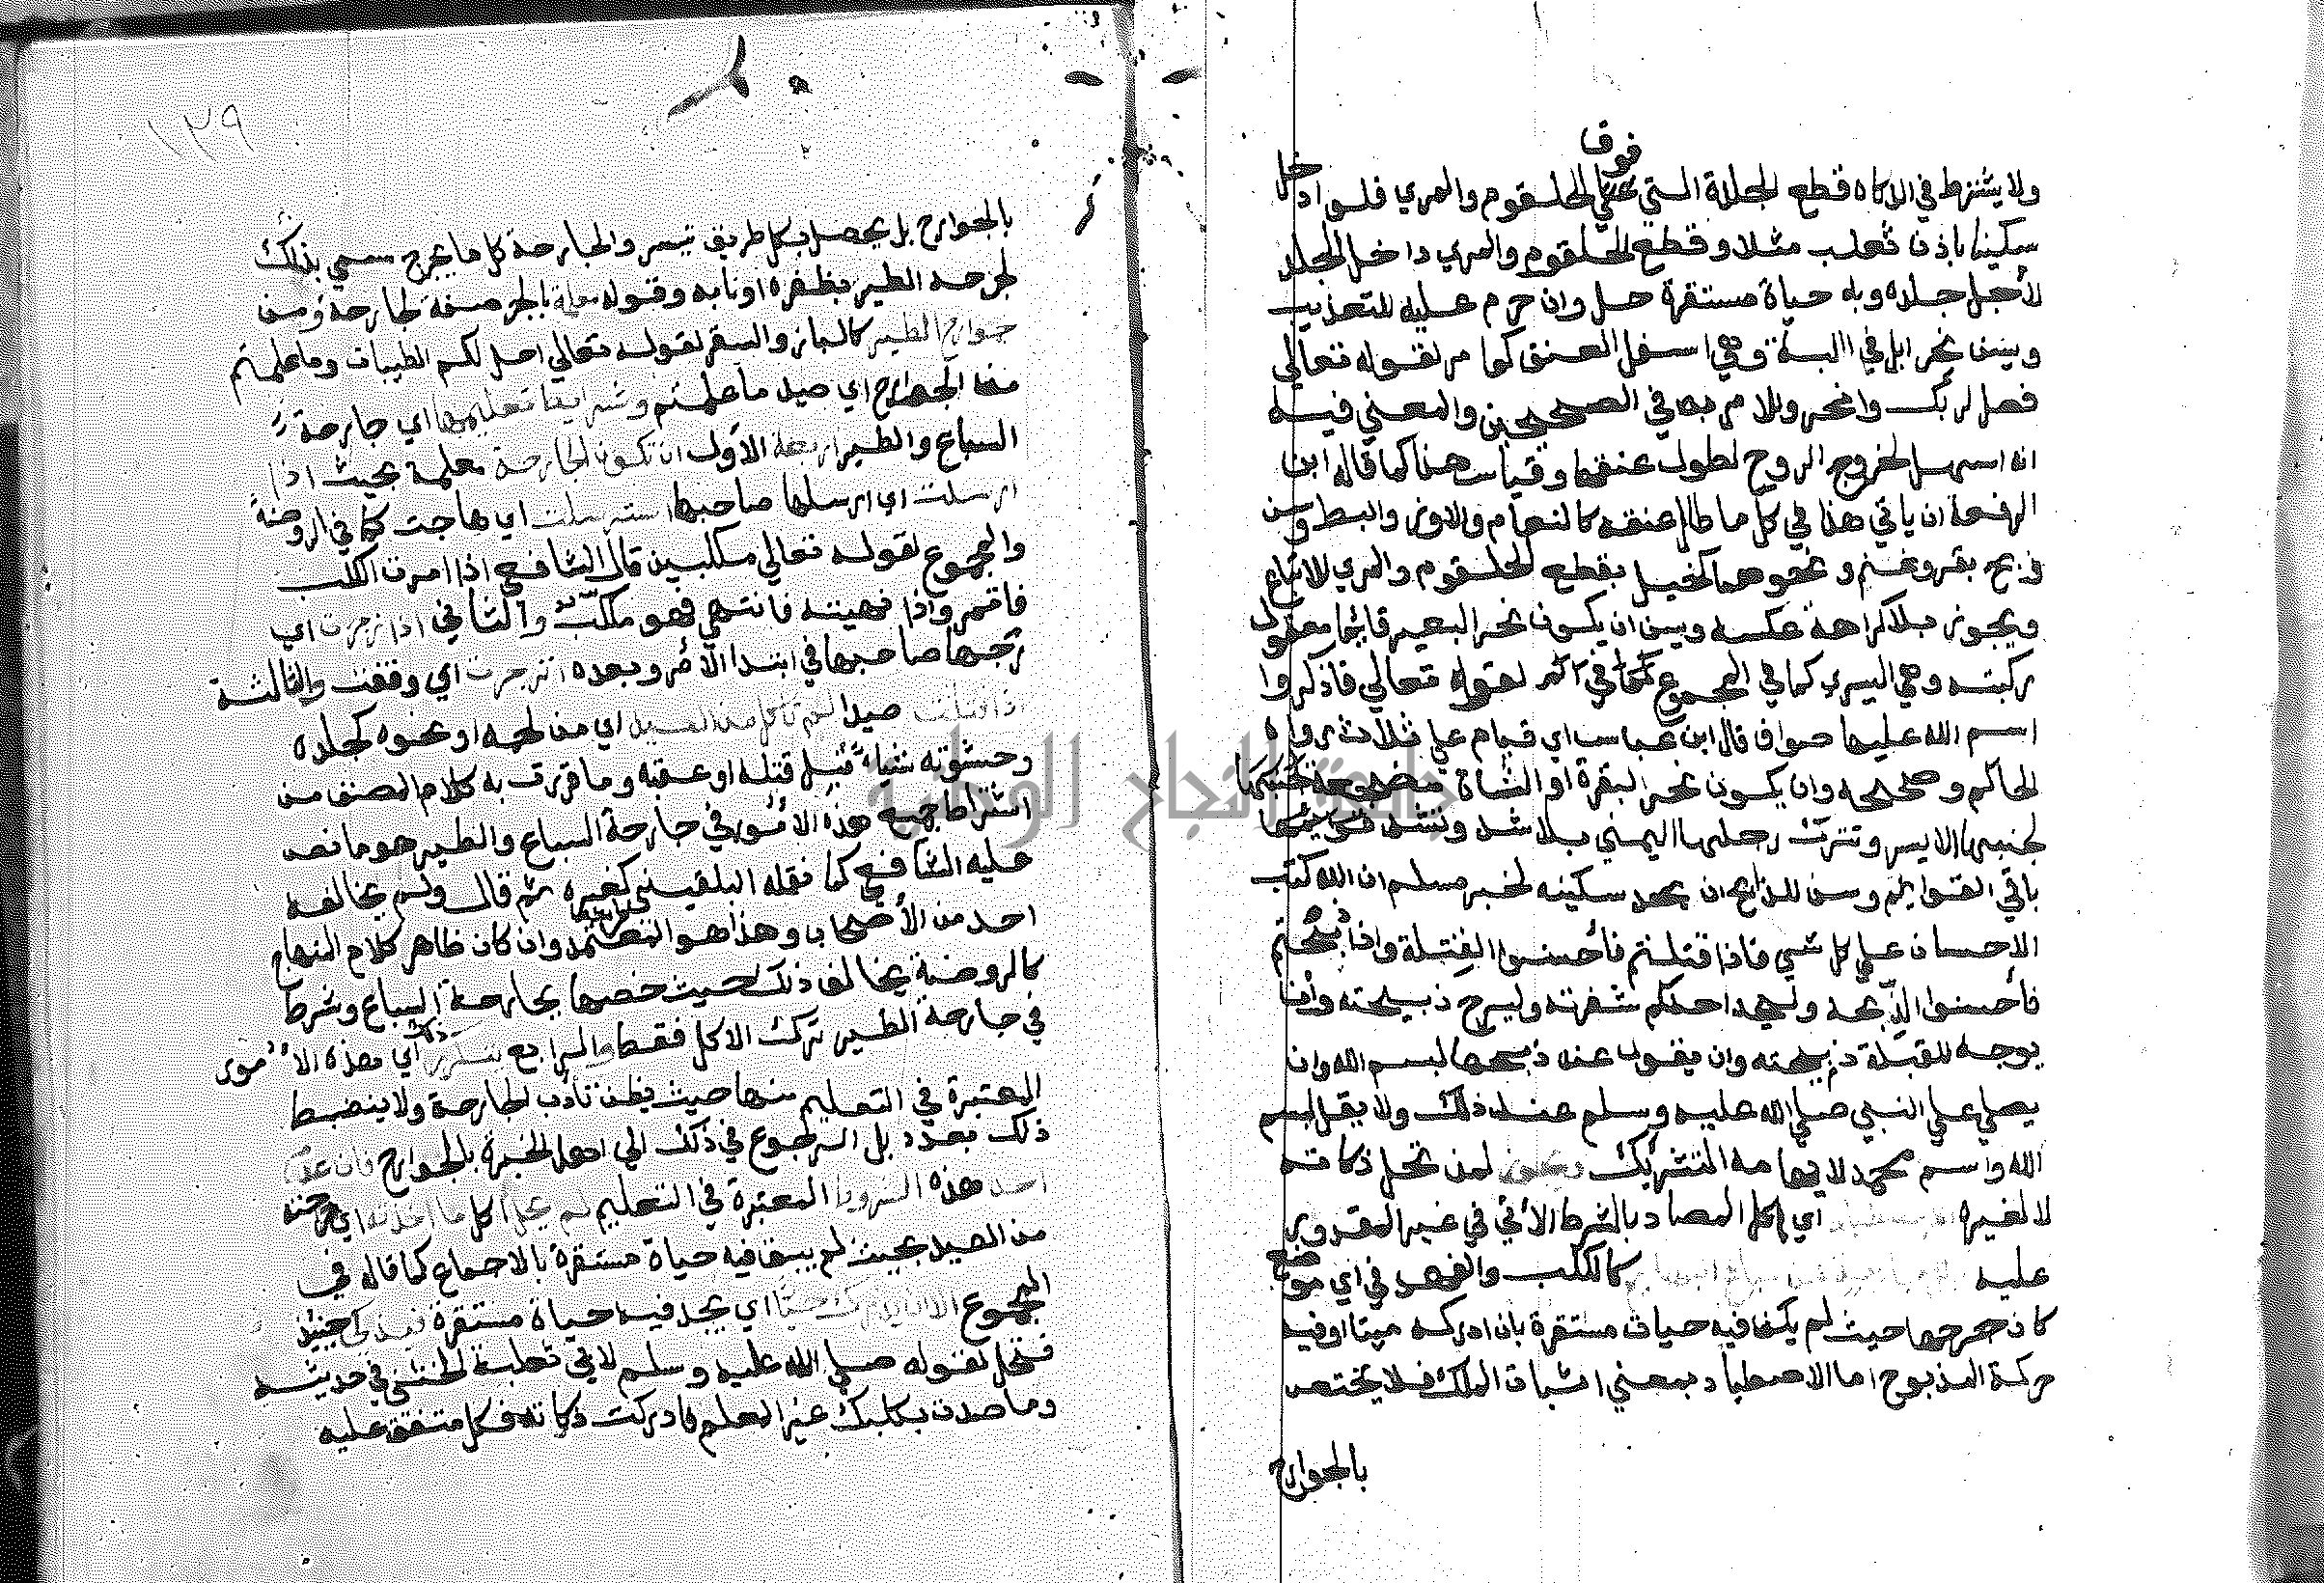 فوق
ولا يشترط في الذكاة قطع الجلدة التي على الحلقوم والمري فلو ادخل
سكينا باذن ثعلب مثلا وقطع الحلقوم والمري داخل الجلد
لأجل جلده وبه حياة مستقرة حل وان حرم عليه للتعذيب
ويسن نحر ابل في اللبة وهي اسفل العنق كما مر لقوله تعالى
فصل لربك وانحر وللامر به في الصحيحين والمعني فيه
انه اسهل لخروج الروح لطول عنقها وقياس هذا كما قاله ابن
الرفعة ان ياتي هذا في كل ما طال عنقه كالنعام والاوز والبط وسن
ذبح بقر وغنم ونحوهما كخيل بقطع الحلقوم والمري للاتباع
ويجوز بلا كراهة عكسه ويسن ان يكون نحر البعير قائما معقول
ركبته وهي اليسري كما في المجموع لقوله تعالي فاذكروا
اسم الله عليها صواف قال ابن عباس اي قيام علي ثلاث رواه
الحاكم وصححه وان يكون نحر البقرة او الشاة مضجعة
لجنبها الايسر وتترك رجلها اليمني بلا شد وتشد
باقي القوايم وسن للذابح ان يحد سكينه لخبر مسلم ان الله كتب
الاحسان علي كل شي فاذا قتلتم فأحسنوا القتلة واذا ذبحتم
فأحسنوا الذبحة وليحد احدكم شفرته وليرح ذبيحته وأن
يوجه للقبلة ذبيحته وان يقول عند ذبحها بسم الله وان
يصلي علي النبي صلي الله عليه وسلم عند ذلك ولا يقل بسم
الله واسم محمد لايهامه التشريك لمن تحل ذكاته
لا لغيره اي اكل المصاد بالشرط الأتي في غير المقدور
عليه كالكلب والفهد في اي موضع
كان جرحها حيث لم يكن فيه حيات مستقرة بان ادركه ميتا او فيه
حركة المذبوح اما الاصطياد بمعني اثبات الملك فلا يختص
بالجوارح
١٣٩
بالجوارح بل يحصل بكل طريق تيسر والجارحة كل ما يجرح سمي بذلك
لجرحه الطير بظفره او نابه وقوله بالجر صفة لجارحة ومن
جوارح الطير كالباز والسقر لقوله تعالي احل لكم الطيبات وما علمتم
من الجوارح اي صيد ما علمتم وشرايط تعليمها اي جارحة
السباع والطير اربعة الأول ان تكون الجارحة معلمة بحيث اذا
ارسلت اي ارسلها صاحبها استرسلت اي هاجت كما في الروضة
والمجموع لقوله تعالي مكلبين قال الشافعي اذا امرت الكلب
فاتمر واذا نهيته فانتهي فهو مكلب والثاني اذا زجرت اي
زجرها صاحبها في ابتدا الأمر وبعده انزجرت اي وقفت والثالثة
اذا قتلت صيدا لم تاكل من الصيد اي من لحمه او نحوه كجلده
وحشوته شيأ قبيل قتله او عقبه وما قررت به كلام المصنف من
اشتراط جميع هذه الأمور في جارحة السباع والطير هو ما نص
عليه الشافعي كما نقله البلقيني كغيره ثم قال ولم يخالفه
احد من الأصحاب وهذا هو المعتمد وان كان ظاهر كلام المنهاج
كالروضة يخالف ذلك حيث خصها بجارحة السباع وشرط
في جارحة الطير ترك الاكل فقط والرابع تكرر ذلك اي هذه الأمور
المعتبرة في التعليم منها حيث يظن تأدب الجارحة ولا ينضبط
ذلك بعدد بل الرجوع في ذلك الي اهل الخبرة بالجوارح فان عدم
احد هذه الشروط المعتبرة في التعليم لم يحل اكل ما اخذته اي جرحته
من الصيد بحيث لم يبق فيه حياة مستقرة بالاجماع كما قاله في
المجموع الا ان يدرك حيا اي يجد فيه حياة مستقرة فيذكي حينئذ
فتحل لقوله صلي الله عليه وسلم لابي ثعلبة الخشني في حديثه
وما صدت بكلبك غير المعلم فادركت ذكاته فكل متفق عليه